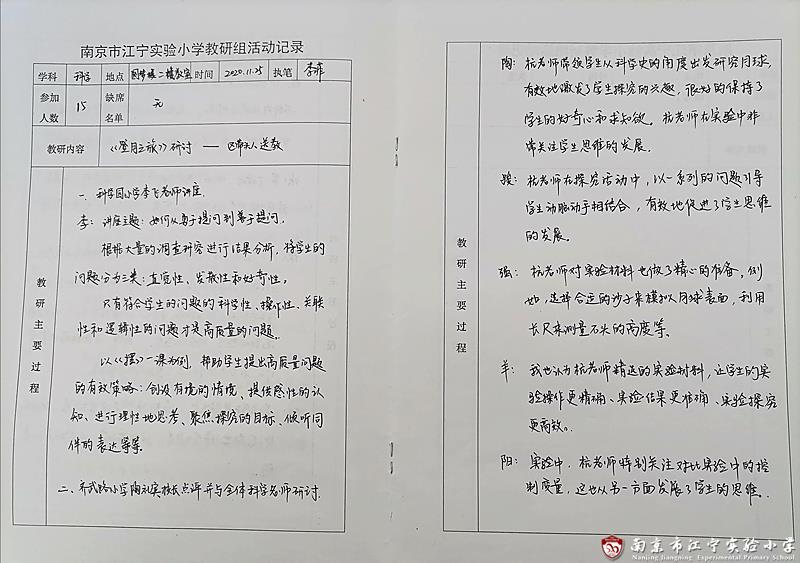 南京市江宁实验小学教研组活动记录
学科 科学 地点 图书楼二楼教室 时间 2020.11.25 执笔 李菲
参加人数 15 缺席名单 无
教研内容 《登月之旅》研讨 —— 区带头人送教
教研主要过程
一、科学园小学李飞老师讲座
李：讲座主题：如何从勇于提问到善于提问。
根据大量的调查研究进行结果分析，将学生的
问题分为三类：直觉性、发散性和好奇性。
只有符合学生的问题的科学性、操作性、关联
性和逻辑性的问题才是高质量的问题。
以《摆》一课为例，帮助学生提出高质量问题
的有效策略：创设有境的情境、提供感性的认
知、进行理性地思考、聚焦探究的目标、倾听同
伴的表达等等。
二、齐武路小学陶礼实校长点评并与全体科学老师研讨.
教研主要过程
陶：杭老师带领学生从科学史的角度出发研究月球，
有效地激发了学生探究的兴趣，很好的保持了
学生的好奇心和求知欲。杭老师在实验中非
常关注学生思维的发展.
骏：杭老师在探究活动中，以一系列的问题引导
学生动脑动手相结合，有效地促进了学生思维
的发展。
强：杭老师对实验材料也做了精心的准备，例
如，选择合适的沙子来模拟月球表面，利用
长尺来测量石头的高度等.
羊：我也认为杭老师精选的实验材料，让学生的实
验操作更精确、实验结果更准确、实验探究
更高效。
阳：实验中，杭老师特别关注对比实验中的控
制变量，这也从另一方面发展了学生的思维.
南京市江宁实验小学
Nanjing Jiangning Experimental Primary School